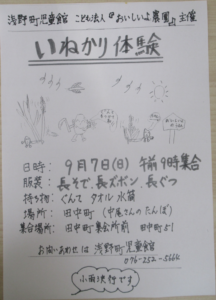 浅野町児童館 こども法人@おいしいよ農園♪主催
いねかり体験
日時: 9月7日(日) 午前9時集合
服装: 長そで、長ズボン、長ぐつ
持ち物: ぐんて タオル 水筒
場所: 田中町 (中尾さんのたんぼ)
集合場所: 田中町集会所前 田中町
お問いあわせは 浅野町児童館
076-252-5664
小雨決行です